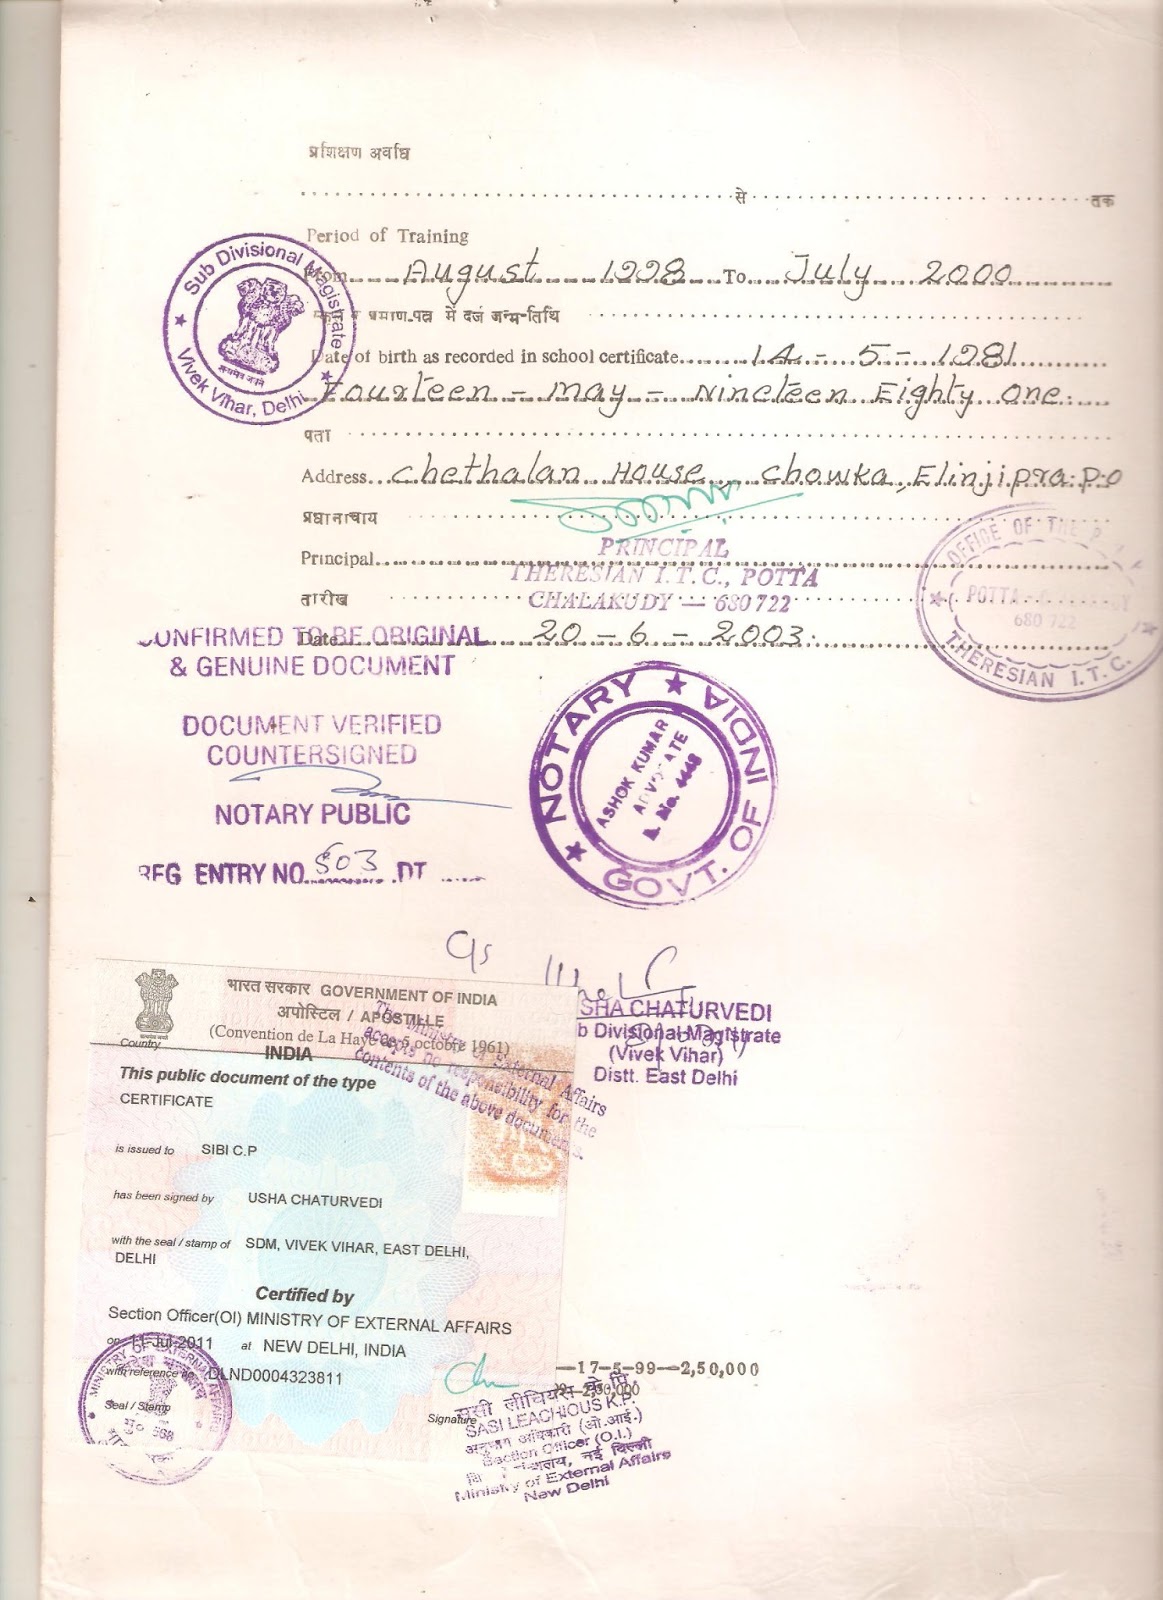 प्रशिक्षण अवधि
से तक
Period of Training
From August 1998 To July 2000
प्रमाण-पत्र में दर्ज जन्म-तिथि
Date of birth as recorded in school certificate 14 - 5 - 1981
Fourteen - May - Nineteen Eighty One.
पता
Address Chethalan House, Chowka, Elinjipra P.O
प्रधानाचाय
Principal
PRINCIPAL
THERESIAN I.T.C., POTTA
CHALAKUDY — 680 722
तारीख
Date 20 - 6 - 2003.
Sub Divisional Magistrate
Vivek Vihar, Delhi
OFFICE OF THE P
POTTA
680 722
THERESIAN I.T.C.
CONFIRMED TO BE ORIGINAL
& GENUINE DOCUMENT
DOCUMENT VERIFIED
COUNTERSIGNED
NOTARY PUBLIC
REG ENTRY NO. 503 DT
NOTARY GOVT. OF INDIA
ASHOK KUMAR
ADVOCATE
USHA CHATURVEDI
Sub Divisional Magistrate
(Vivek Vihar)
Distt. East Delhi
भारत सरकार GOVERNMENT OF INDIA
अपोस्टिल / APOSTILLE
(Convention de La Haye du 5 octobre 1961)
Country INDIA
The Ministry of External Affairs
accepts no responsibility for the
contents of the above documents.
This public document of the type
CERTIFICATE
is issued to SIBI C.P
has been signed by USHA CHATURVEDI
with the seal / stamp of SDM, VIVEK VIHAR, EAST DELHI,
DELHI
Certified by
Section Officer(OI) MINISTRY OF EXTERNAL AFFAIRS
on 11-Jul-2011 at NEW DELHI, INDIA
with reference no DLND0004323811
Seal / Stamp
Signature
MINISTRY OF EXTERNAL AFFAIRS
—17-5-99—2,50,000
SASI LEACHIOUS K.P.
अनुभाग अधिकारी (ओ.आई.)
Section Officer (O.I.)
नई दिल्ली
Ministry of External Affairs
New Delhi